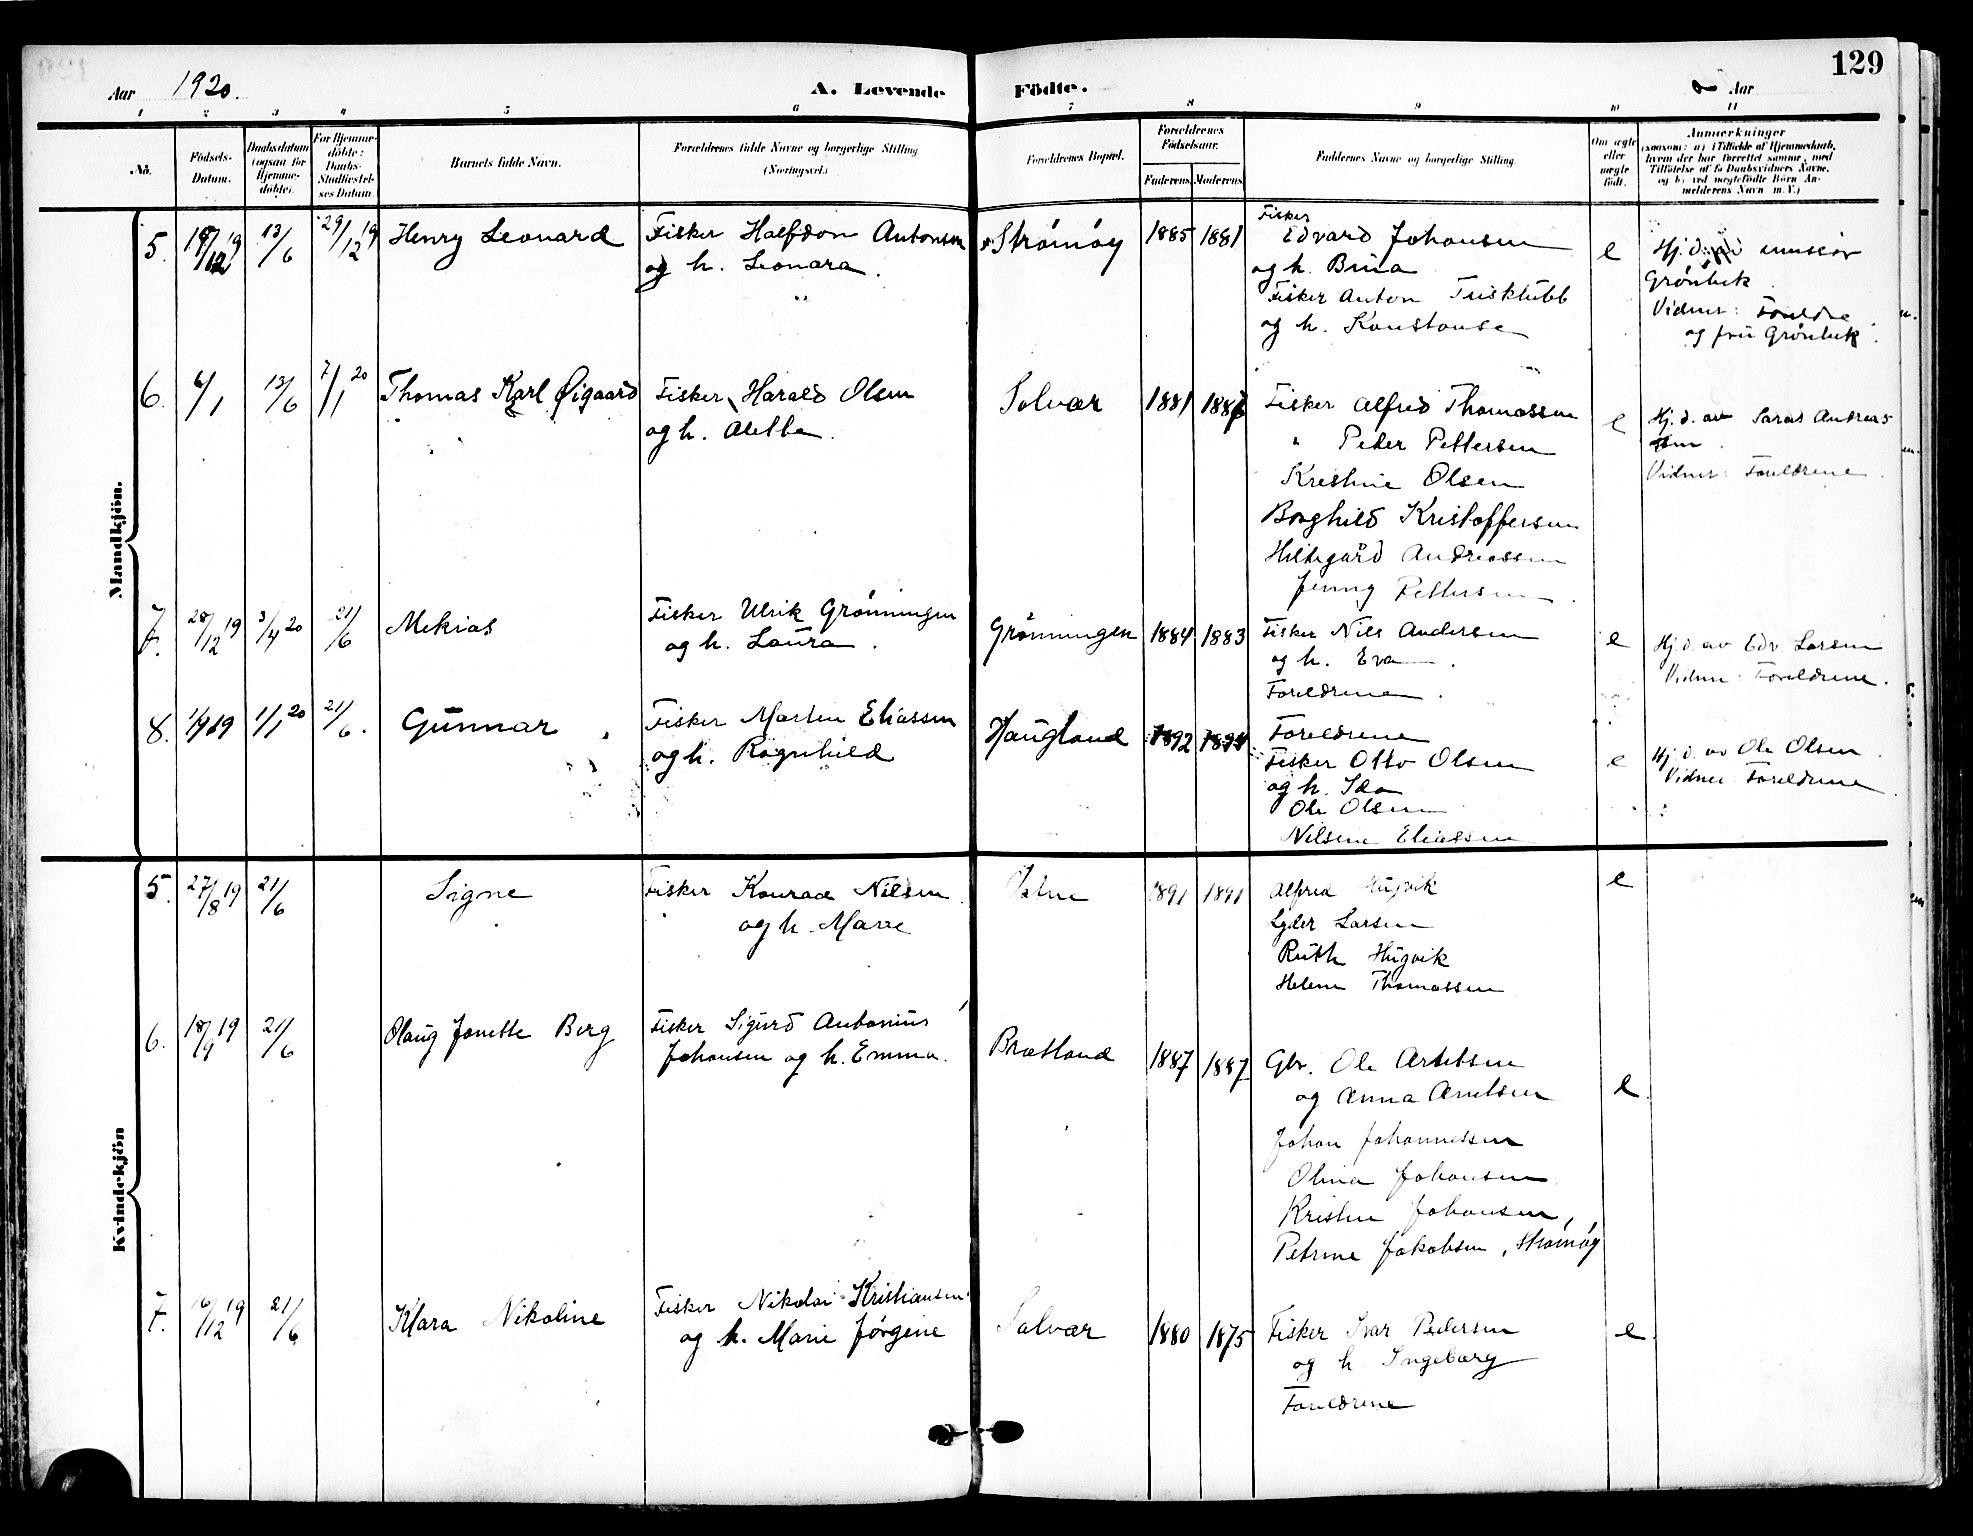 129
Aar 1920. A. Levende Födte. Aar
1 2 3 4 5 6 7 8 9 10 11
No.
Födsels-Datum.
Daabsdatum (ogsaa for Hjemmedöbte).
For Hjemmedöbte: Daabs-Stadfæstelses Datum.
Barnets fulde Navn.
Forældrenes fulde Navne og borgerlige Stilling (Næringsvei.)
Forældrenes Bopæl.
Forældrenes Födselsaar.
Faderens. Moderens.
Faddernes Navne og borgerlige Stilling.
Om ægte eller uægte födt.
Anmærkninger
Mandkjön.
5. 13/6 29/12 19 Henry Leonard
Fisker Halfdan Antonsen
og h. Leonara.
Strømøy 1885 1881
Fisker
Edvard Johansen
og h. Brina
Fisker Anton
og h. Konstanse
e
Hj.d.
Grönbek
Vidner: Foreldre
og fru Grönbek.
6. 6/1 13/6 7/1 20 Thomas Karl Øigaard
Fisker Harald Olsen
og h. Aletta.
Solvær 1881
Fisker Alfred Thomassen
" Peder Pettersen
Kristine Olsen
Borghild Kristoffersen
Hildegård Andreassen
Jenny Pettersen.
e
Hj.d. av Andreas
sen.
Vidner: Foreldrene.
7. 28/12 19 3/4 20 21/6 Mekias
Fisker Ulrik Grönningen
og h. Laura.
Grönningen 1884 1883
Fisker Nils Andersen
og h. Eva.
Foreldrene.
e
Hj.d. av Edv. Larsen
Vidner: Foreldrene.
8. 1/1 20 21/6. Gunnar
Fisker Morten Eliassen
og h. Ragnhild
Haugland 1892
Foreldrene
Fisker Otto Olsen
og h. Ida
Ole Olsen
Nilsine Eliassen
e
Hj.d. av Ole Olsen.
Vidner Foreldrene
Kvindekjön
5. 27/8 19 21/6 Signe
Fisker Konrad Nilsen
og h. Marie
1891 1891
Alfred Hugvik
Lyder Larsen
Ruth Hugvik
Helene Thomassen
e
6. 18/9 19 21/6 Olaug Jonette Berg
Fisker Sigurd Antonius
Johansen og h. Emma.
Bratland 1887 1887
Gbr. Ole Arntsen
og Anna Arntsen
Johan Johannessen
Olina Johansen
Kristine Johansen,
Petrine Jakobsen, Strømøy
e
7. 16/12 19 21/6 Klara Nikoline
Fisker Nikolai Kristiansen
og h. Marie Jørgine
Solvær 1880 1875
Fisker Ivar Pedersen
og h Ingeborg
Foreldrene
e